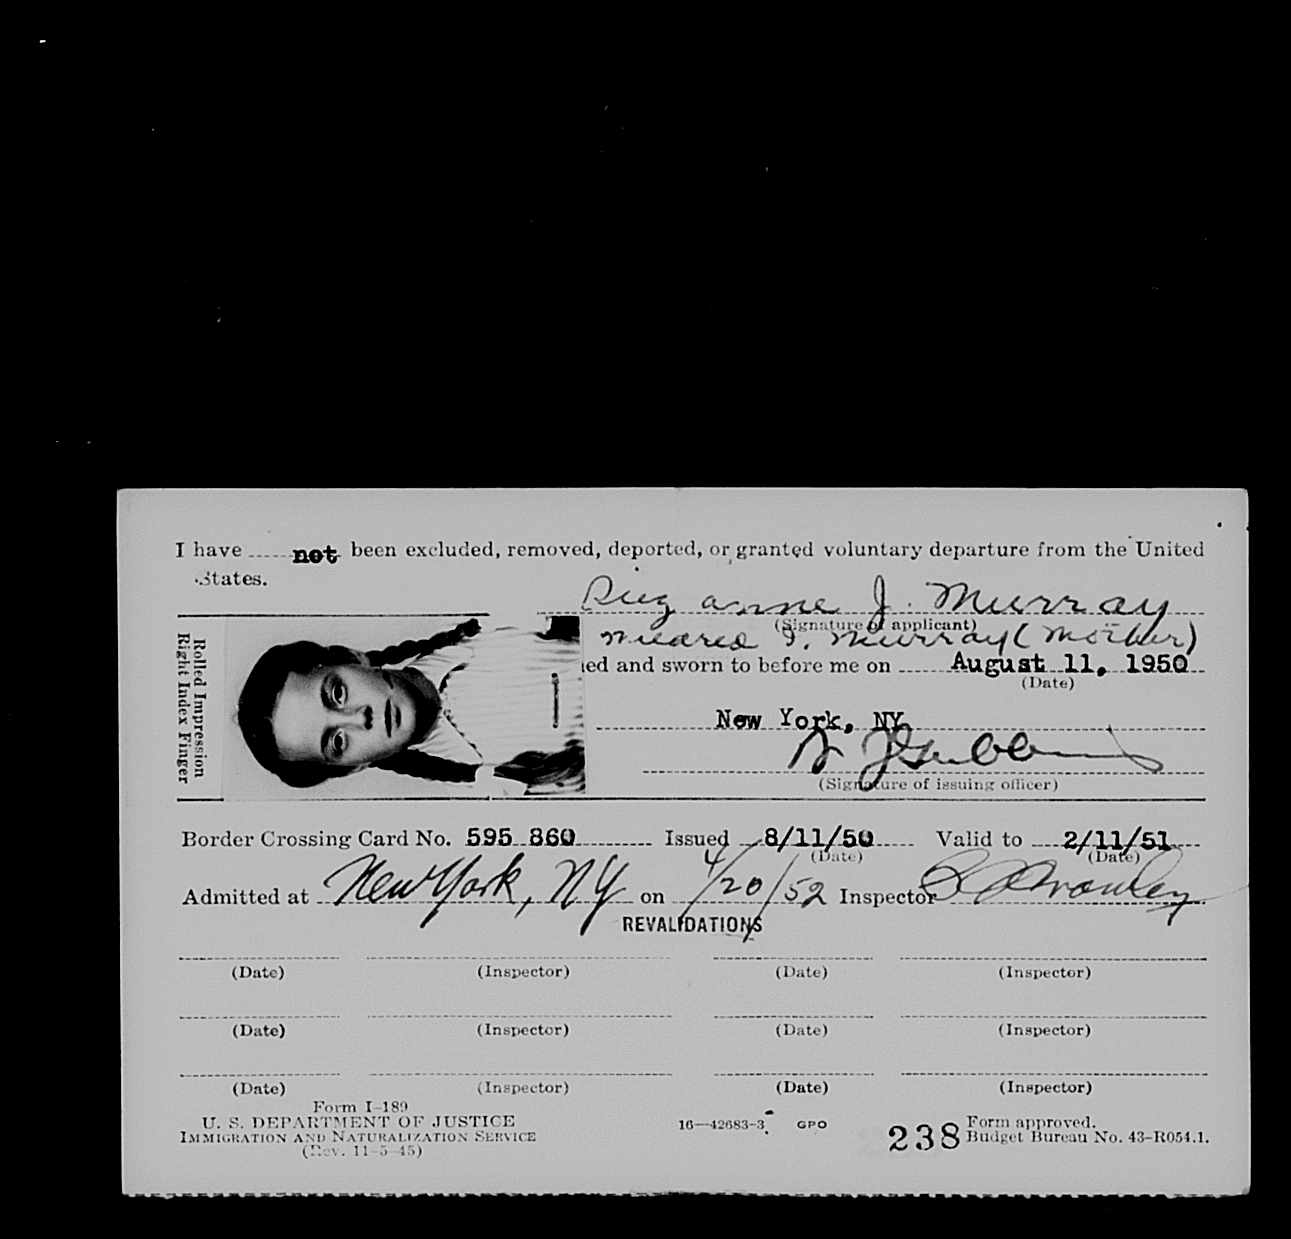 I have not been excluded, removed, deported, or granted voluntary departure from the United
States.
Suzanne J. Murray
(Signature of applicant)
Mildred I. Murray (Mother)
ed and sworn to before me on August 11, 1950
(Date)
New York, NY
(Signature of issuing officer)
Rolled Impression
Right Index Finger
Border Crossing Card No. 595 860 Issued 8/11/50 Valid to 2/11/51
(Date) (Date)
Admitted at New York, NY on 4/20/52 Inspector
REVALIDATIONS
(Date) (Inspector) (Date) (Inspector)
(Date) (Inspector) (Date) (Inspector)
(Date) (Inspector) (Date) (Inspector)
Form I-189
U. S. DEPARTMENT OF JUSTICE
IMMIGRATION AND NATURALIZATION SERVICE
(Rev. 11-5-45)
16—42683-3 GPO
238
Form approved.
Budget Bureau No. 43-R054.1.